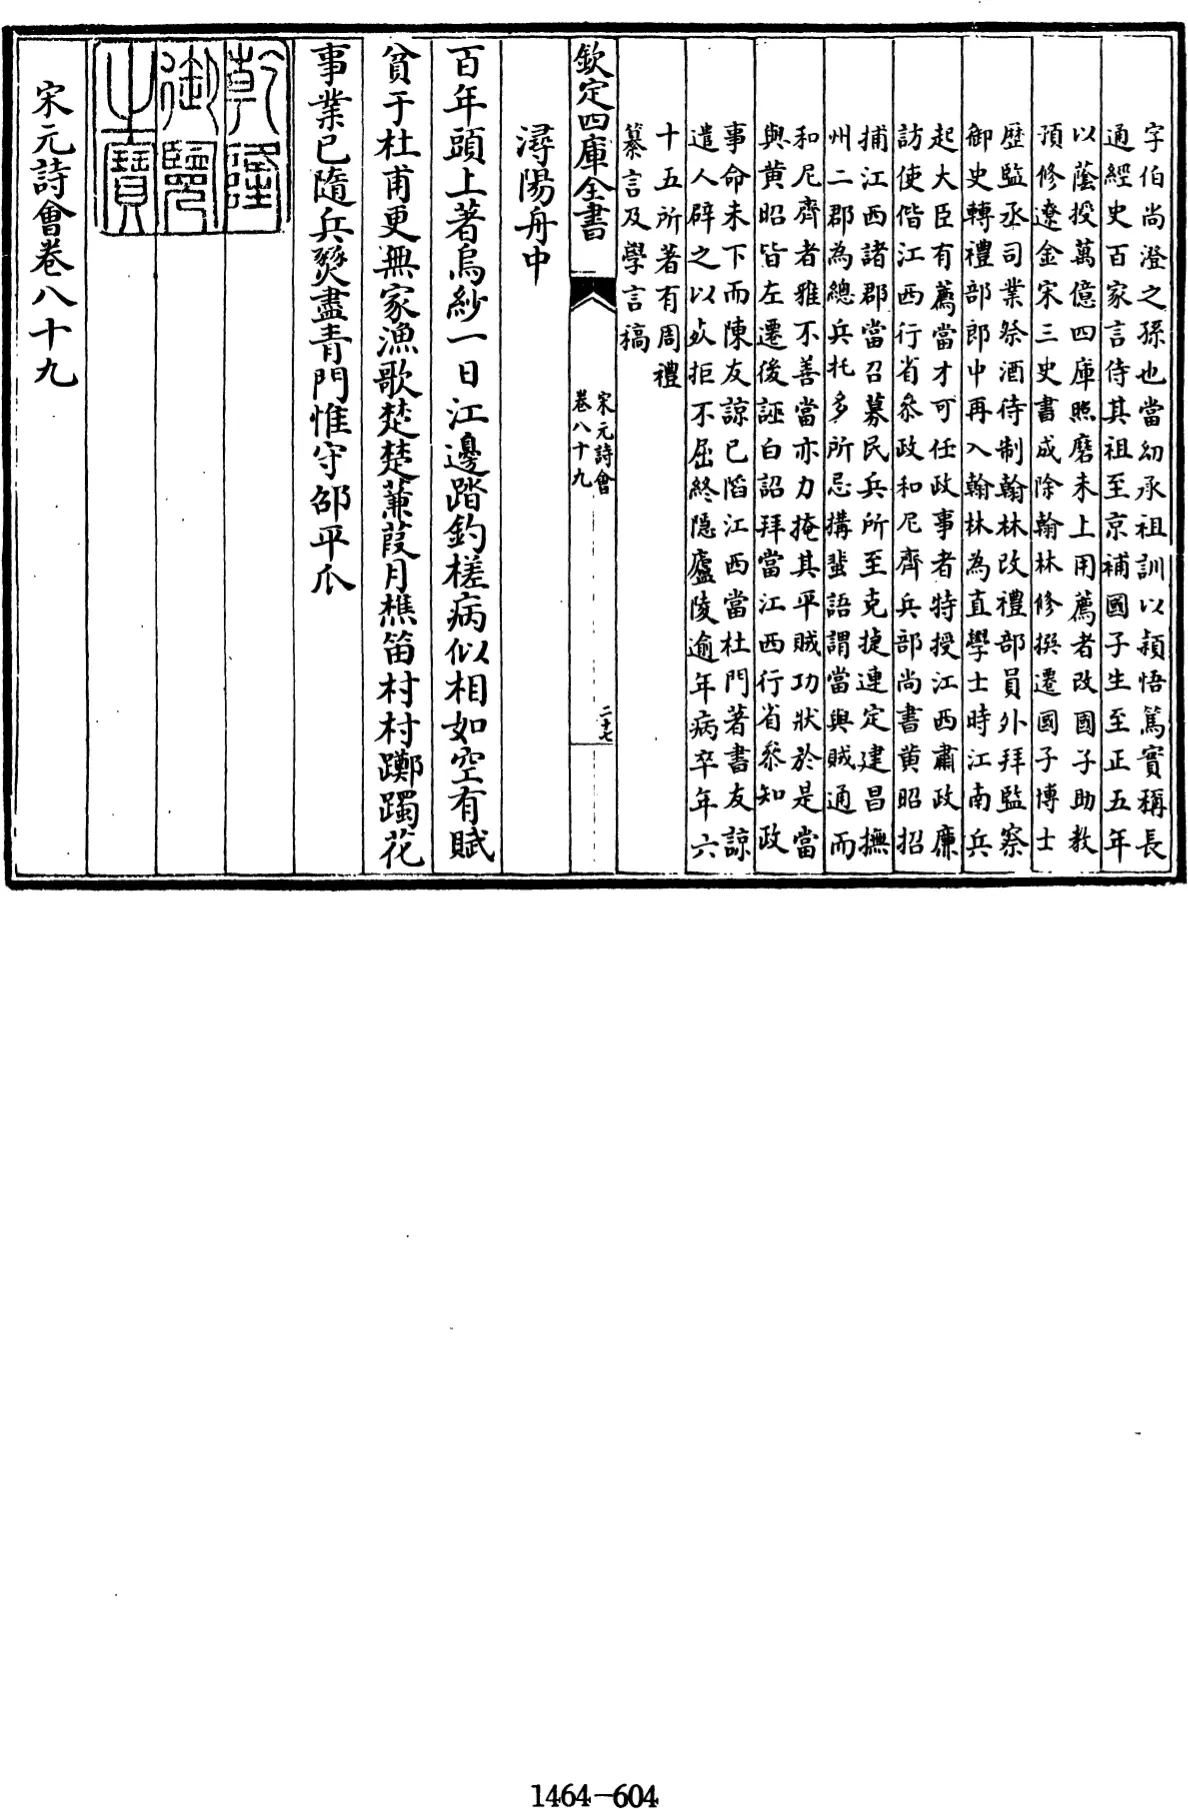 字伯尚澄之孫也當幼承祖訓以穎悟篤實稱長
通經史百家言侍其祖至京補國子生至正五年
以蔭授萬億四庫照磨未上用薦者改國子助教
預修遼金宋三史書成除翰林修撰遷國子博士
歴監丞司業祭酒待制翰林改禮部員外拜監察
御史轉禮部郎中再入翰林為直學士時江南兵
起大臣有薦當才可任政事者特授江西肅政廉
訪使偕江西行省叅政和尼齊兵部尚書黄昭招
捕江西諸郡當召募民兵所至克捷連定建昌撫
州二郡為總兵托多所忌搆蜚語謂當與賊通而
和尼齊者雅不善當亦力掩其平賊功狀於是當
與黄昭皆左遷後誣白詔拜當江西行省叅知政
事命未下而陳友諒已䧟江西當杜門著書友諒
遣人辟之以𣦸拒不屈終隱廬陵逾年病卒年六
十五所著有周禮
纂言及學言稿
欽定四庫全書
宋元詩會
卷八十九
二十七
潯陽舟中
百年頭上著烏紗一日江邊踏釣槎病似相如空有賦
貧于杜甫更無家漁歌楚楚蒹葭月樵笛村村躑躅花
事業已隨兵燹盡青門惟守邵平瓜
乾隆
御覽
之寶
宋元詩會卷八十九
1464-604